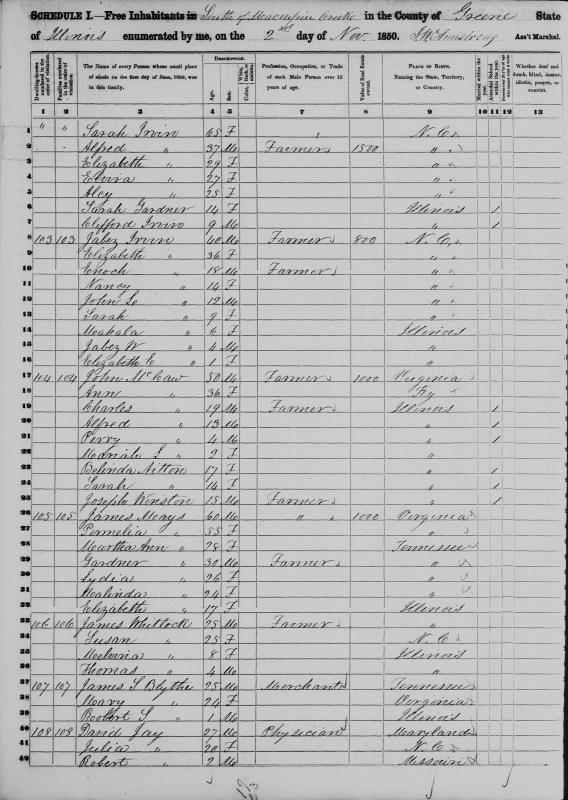 SCHEDULE I.—Free Inhabitants in South of Macoupin Creek in the County of Greene State
of Illinois enumerated by me, on the 2nd day of Nov. 1850. J W Armstrong Ass't Marshal.
Dwelling-houses numbered in the order of visitation.
Families numbered in the order of visitation.
The Name of every Person whose usual place of abode on the first day of June, 1850, was in this family.
DESCRIPTION.
Age.
Sex.
Profession, Occupation, or Trade of each Male Person over 15 years of age.
Value of Real Estate owned.
PLACE OF BIRTH. Naming the State, Territory, or Country.
Married within the year.
Attended School within the year.
Whether deaf and dumb, blind, insane, idiotic, pauper, or convict.
1 2 3 4 5 6 7 8 9 10 11 12 13
1 " " Sarah Irvin 65 F N. C.
2 " Alfred " 37 M Farmer 1500 "
3 Elizabeth " 29 F "
4 Elvira " 27 F "
5 Alcy " 25 F "
6 Sarah Gardner 14 F Illinois 1
7 Clifford Irvin 9 M " 1
8 103 103 Jabez Irvin 40 M Farmer 800 N. C.
9 Elizabeth " 36 F "
10 Enoch " 18 M Farmer "
11 Nancy " 14 F "
12 John L " 12 M "
13 Sarah " 9 F "
14 Mahala " 6 F Illinois
15 Jabez W " 4 M "
16 Elizabeth E " 1 F "
17 104 104 John McCaw 50 M Farmer 1000 Virginia
18 Ann " 36 F Ky
19 Charles " 19 M Farmer Illinois 1
20 Alfred " 13 M " 1
21 Perry " 4 M " 1
22 Mariah L " 2 F "
23 Belinda Aitton 17 F " 1
24 Sarah " 14 F " 1
25 Joseph Winston 15 M Farmer " 1
26 105 105 James Mays 60 M " 1000 Virginia
27 Permelia " 55 F "
28 Martha Ann " 28 F Tennessee
29 Gardner " 30 M Farmer "
30 Lydia " 26 F "
31 Malinda " 24 F "
32 Elizabeth " 17 F Illinois
33 106 106 James Whitlock 25 M Farmer "
34 Susan " 25 F N. C.
35 Melvina " 8 F Illinois
36 Thomas " 4 M "
37 107 107 James S Blythe 25 M Merchant Tennessee
38 Mary " 24 F Virginia
39 Robert S " 1 M Illinois
40 108 108 David Jay 27 M Physician Maryland
41 Julia " 20 F N. C
42 Robert " 2 M Missouri